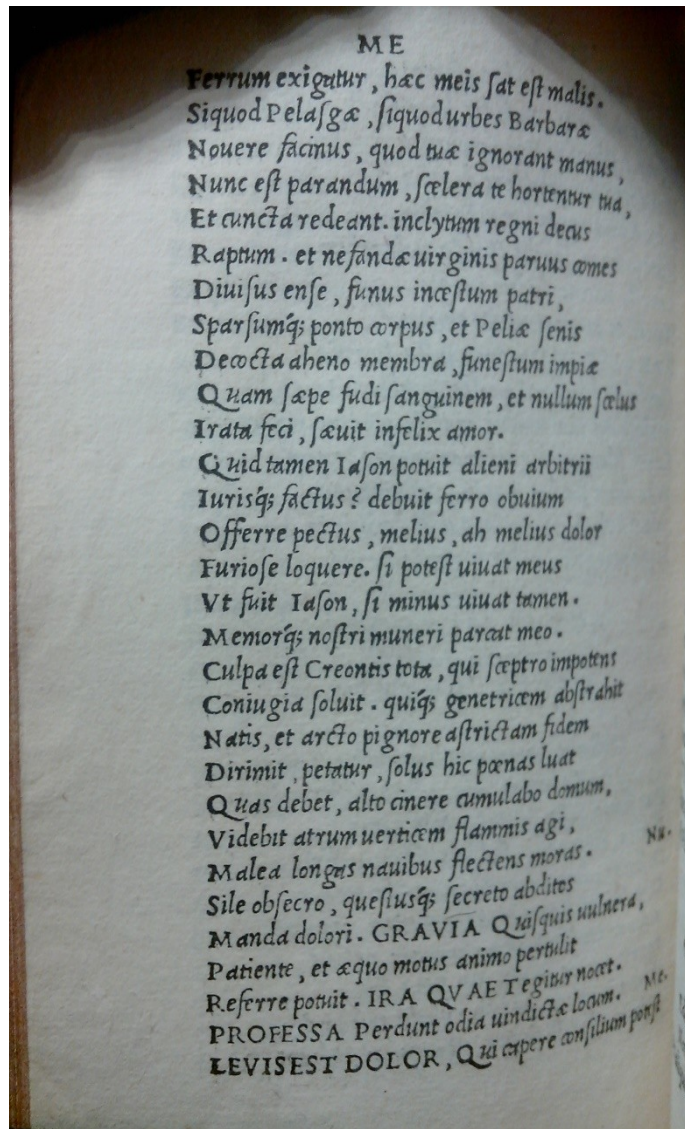 ME
Ferrum exigatur, hæc meis sat est malis.
Siquod Pelasgæ, siquod urbes Barbaræ
Nouere facinus, quod tuæ ignorant manus,
Nunc est parandum, scelera te hortentur tua,
Et cuncta redeant. inclytum regni decus
Raptum. et nefandæ uirginis paruus comes
Diuisus ense, funus incestum patri,
Sparsumq́; ponto corpus, et Peliæ senis
Decocta aheno membra, funestum impiæ
Quam sæpe fudi sanguinem, et nullum scelus
Irata feci, sæuit infelix amor.
Quid tamen Iason potuit alieni arbitrii
Iurisq́; factus? debuit ferro obuium
Offerre pectus, melius, ah melius dolor
Furiose loquere. si potest uiuat meus
Vt fuit Iason, si minus uiuat tamen.
Memorq́; nostri muneri parcat meo.
Culpa est Creontis tota, qui sceptro impotens
Coniugia soluit. quiq́; genetricem abstrahit
Natis, et arcto pignore astrictam fidem
Dirimit, petatur, solus hic pœnas luat
Quas debet, alto cinere cumulabo domum,
Videbit atrum uerticem flammis agi,
Malea longas nauibus flectens moras. Nu.
Sile obsecro, questusq́; secreto abditos
Manda dolori. GRAVIA Quisquis uulnera,
Patiente, et æquo motus animo pertulit
Referre potuit. IRA QVAE Tegitur nocet. Me.
PROFESSA Perdunt odia uindictæ locum.
LEVIS EST DOLOR, Qui capere consilium potest